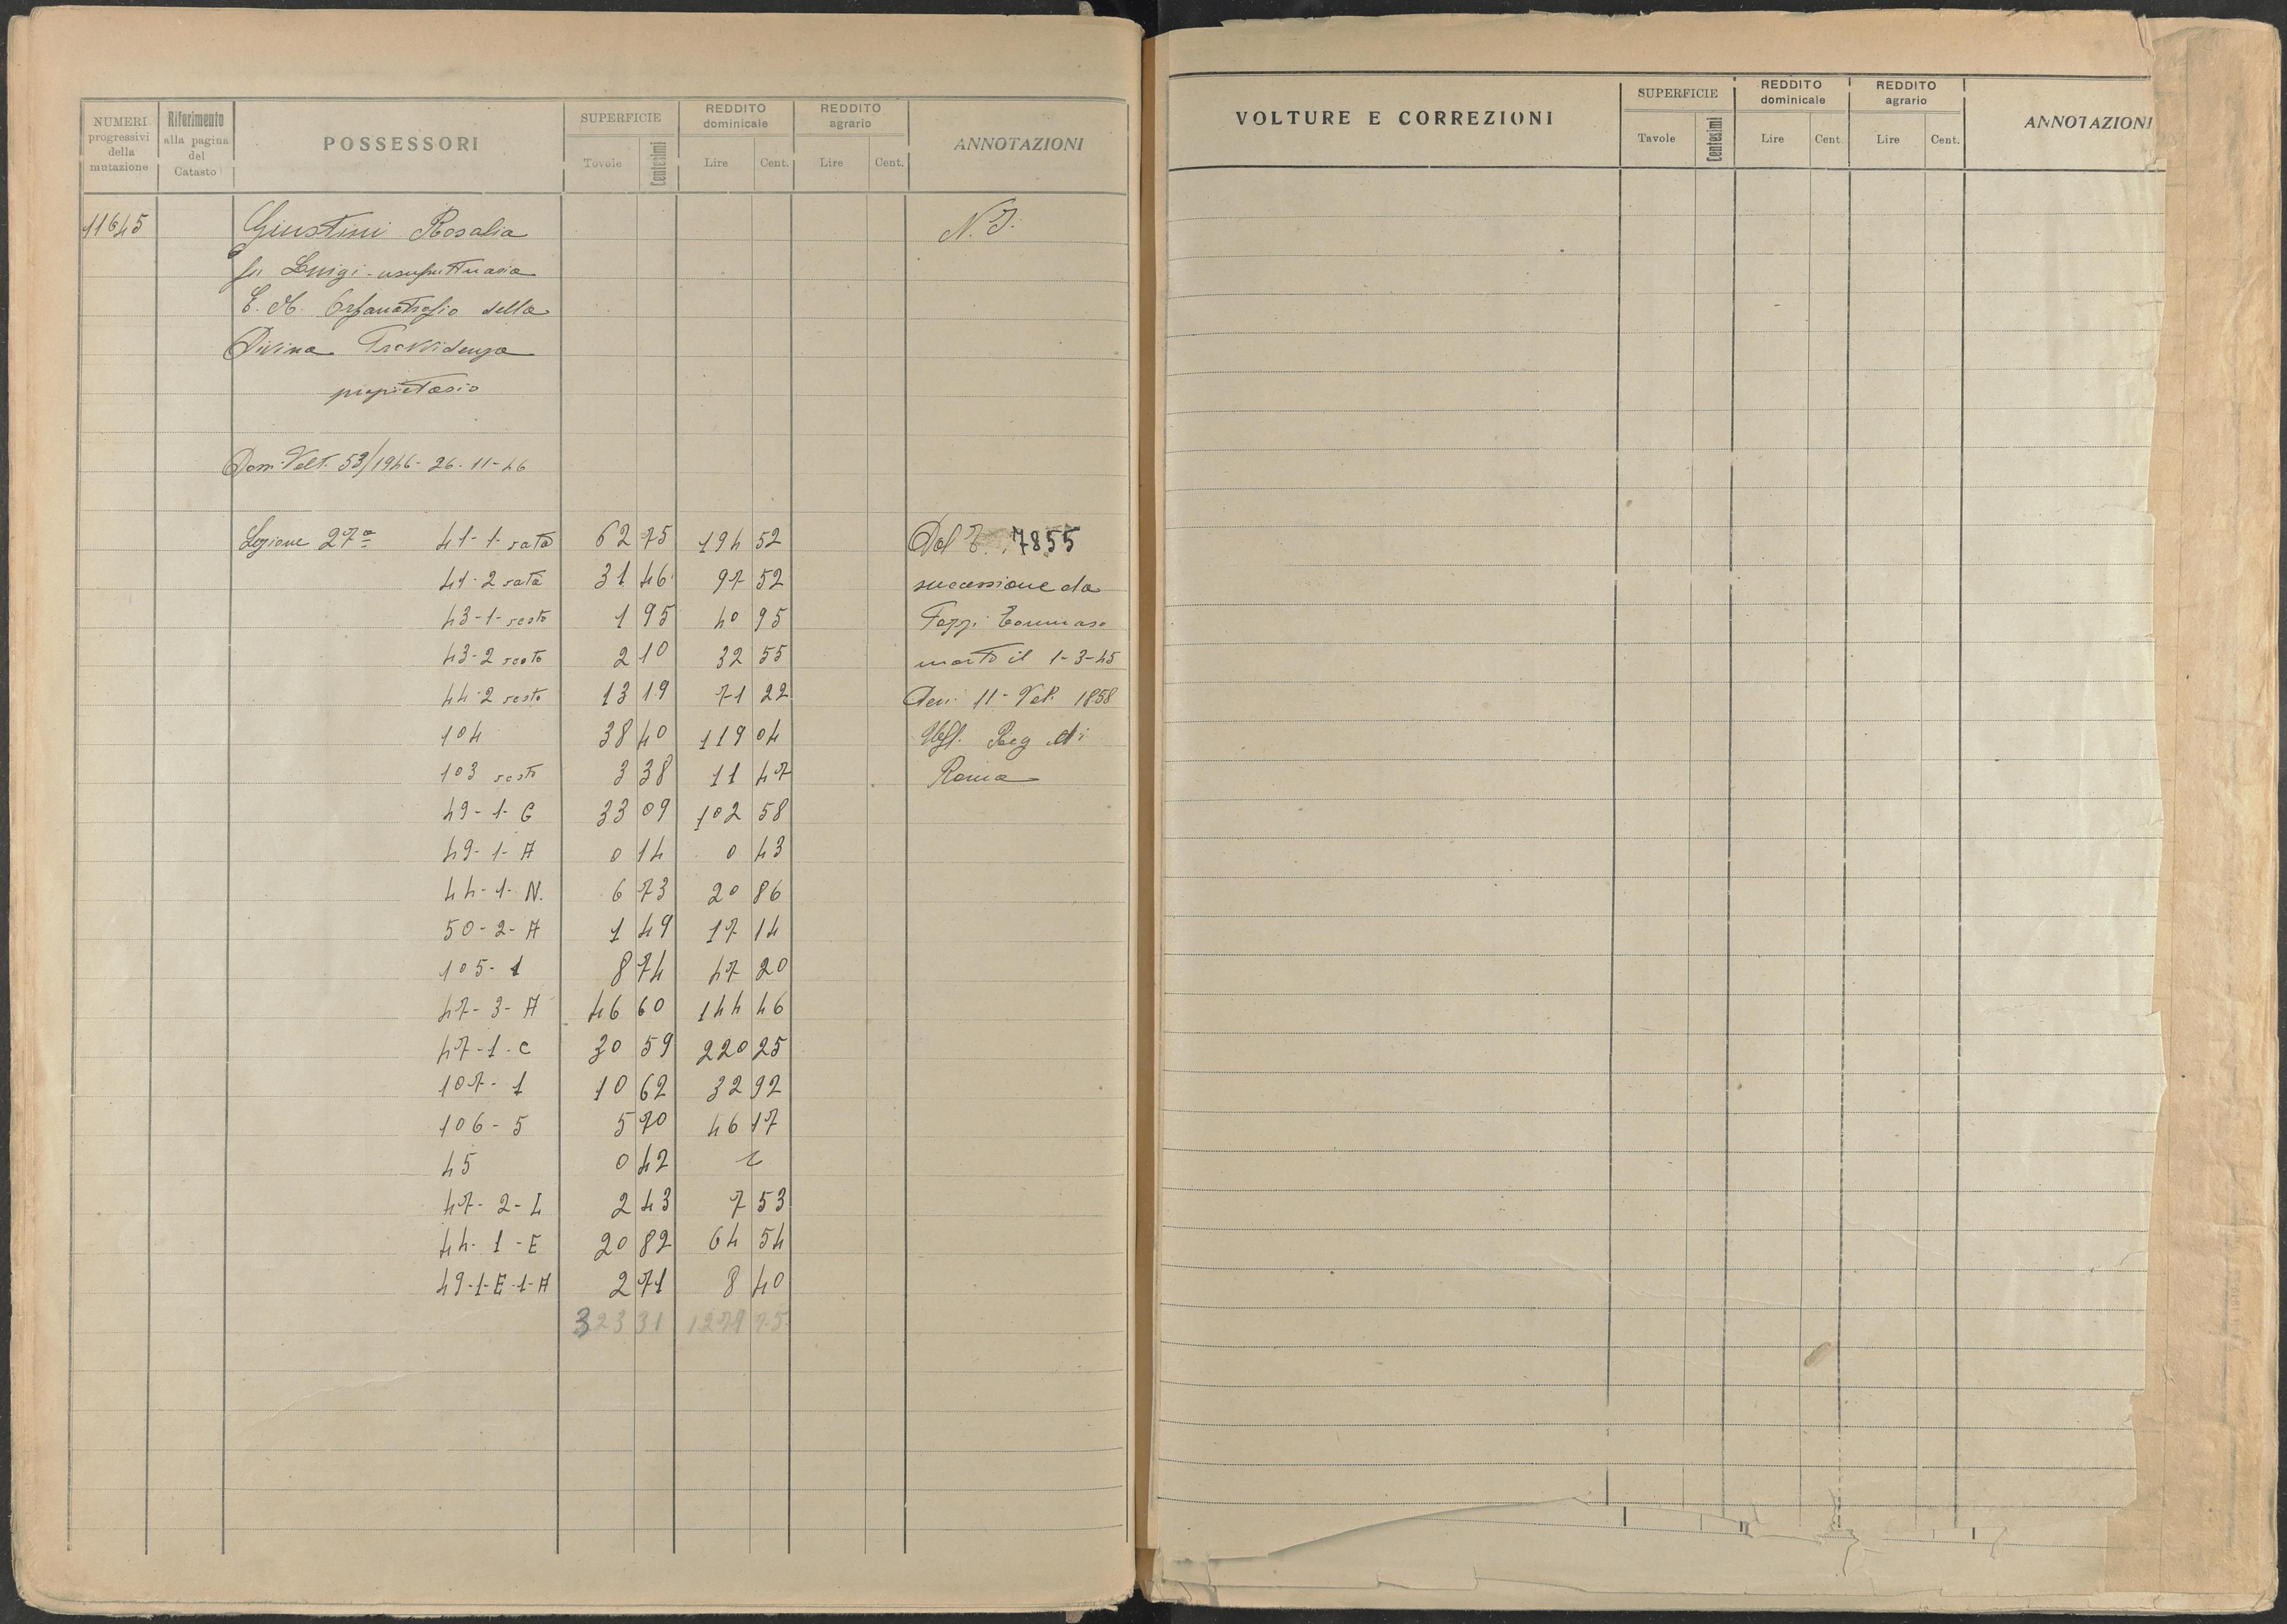 NUMERI progressivi della mutazione | Riferimento alla pagina del Catasto | POSSESSORI | SUPERFICIE Tavole Centesimi | REDDITO dominicale Lire Cent. | REDDITO agrario Lire Cent. | ANNOTAZIONI
11645 Giustini Rosalia
fu Luigi - usufruttuaria
E. M. Orfanatrofio della
Divina Provvidenza
proprietario
Dom. Volt. 53/1946 - 26-11-46
Legione 27ª 41-1- rata 62 75 194 52 Dal 7855
41-2 rata 31 46 97 52 successione da
43-1- resto 1 95 40 95 Tommaso
43-2 resto 2 10 32 55 morto il 1-3-45
44-2 resto 13 19 71 22 Den. 11 - Vol. 1858
104 38 40 119 04 Uff. Reg di
103 resto 3 38 11 47 Roma
49-1-G 33 09 102 58
49-1-A 0 14 0 43
44-1-N. 6 73 20 86
50-2-A 1 49 17 14
105-1 8 74 47 20
47-3-A 46 60 144 46
47-1-C 30 59 220 25
107-1 10 62 32 92
106-5 5 70 46 17
45 0 42
47-2-L 2 43 7 53
44-1-E 20 82 64 54
49-1-E-1-A 2 71 8 40
323 31 1279 75
VOLTURE E CORREZIONI | SUPERFICIE Tavole Centesimi | REDDITO dominicale Lire Cent. | REDDITO agrario Lire Cent. | ANNOTAZIONI